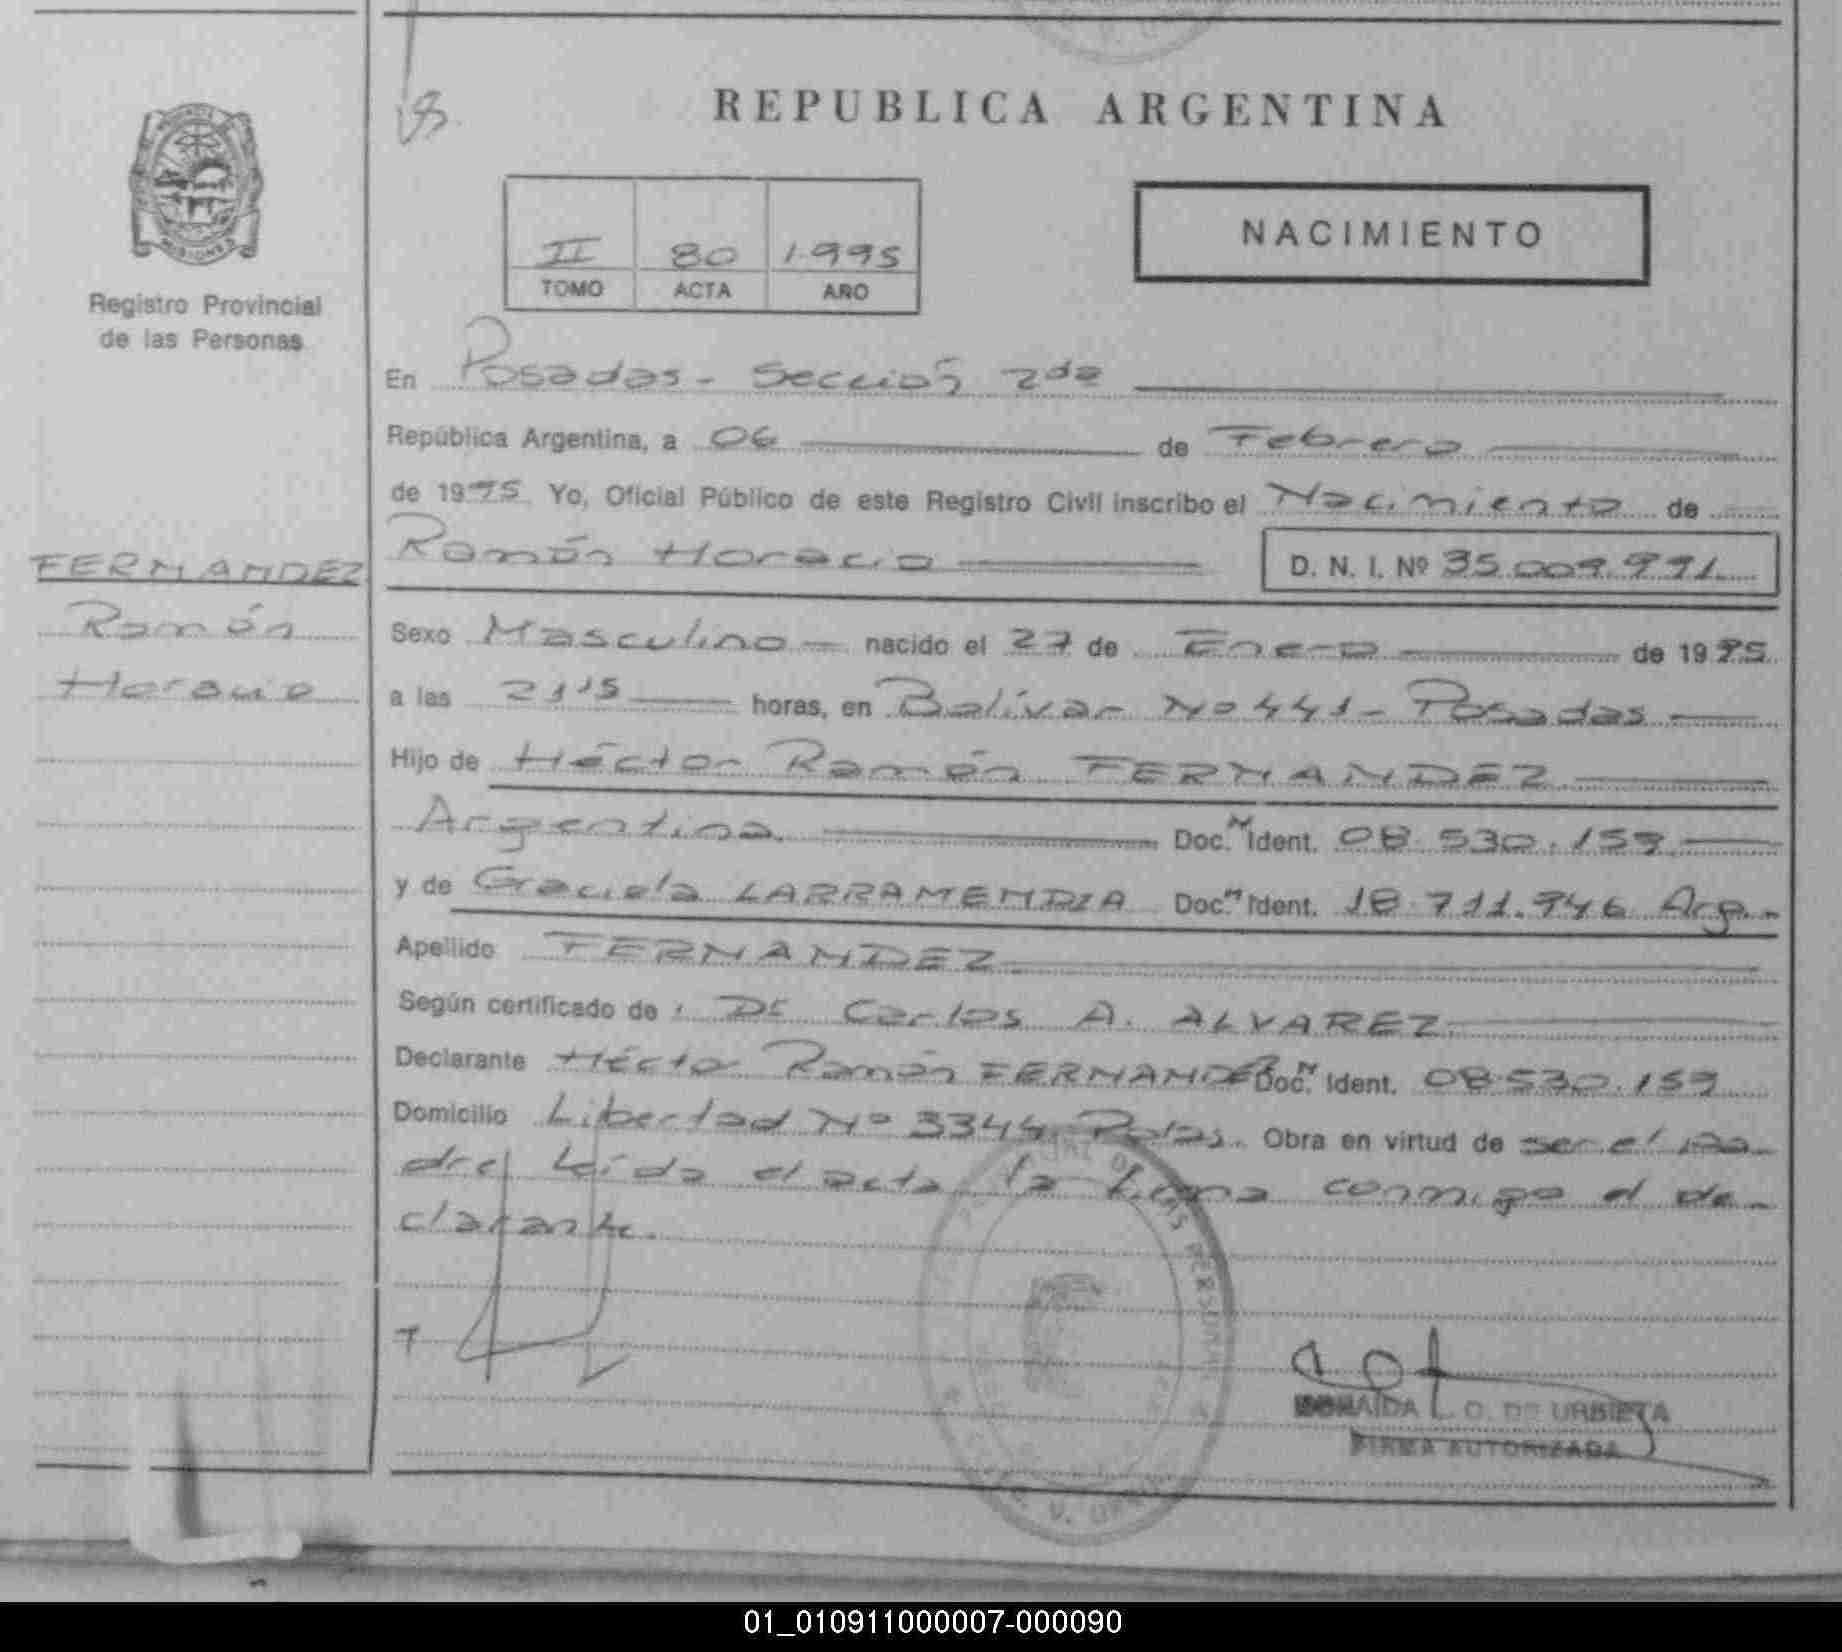 REPUBLICA ARGENTINA
NACIMIENTO
II 80 1.995
TOMO ACTA AÑO
MISIONES
Registro Provincial
de las Personas
FERNANDEZ
Ramón
Horacio
En Posadas - Sección 2da
República Argentina, a 06 de Febrero
de 1995 Yo, Oficial Público de este Registro Civil inscribo el Nacimiento de
Ramón Horacio D. N. I. Nº 35.009.991
Sexo Masculino nacido el 27 de Enero de 1995
a las 21 15 horas, en Bolívar Nº 441 - Posadas
Hijo de Héctor Ramón FERNANDEZ
Argentina. Doc. N Ident. 08.530.159
y de Graciela LARRAMENDIA Doc. N Ident. 18.711.946 Arg.
Apellido FERNANDEZ
Según certificado de : Dr Carlos A. ALVAREZ
Declarante Héctor Ramón FERNANDEZ Doc. N Ident. 08.530.159
Domicilio Libertad Nº 3344 Pdas. Obra en virtud de ser el pa-
dre leída el acta la firma conmigo el de-
clarante.
O. DE URBIETA
FIRMA AUTORIZADA
01_010911000007-000090